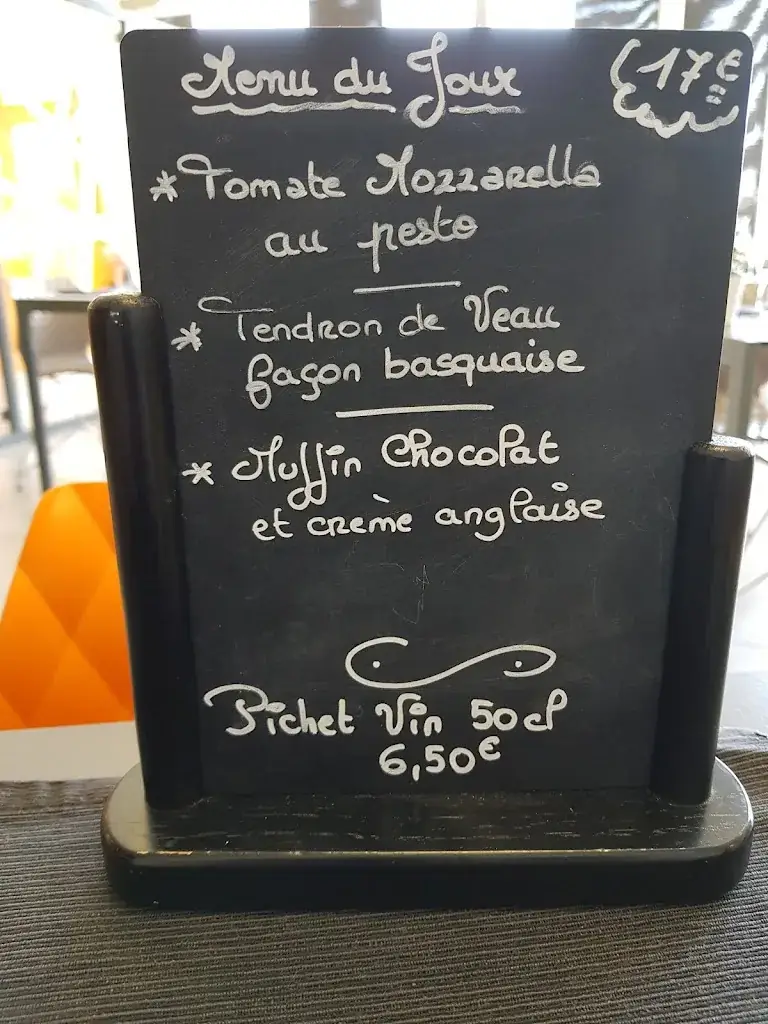 Menu du Jour
17€
* Tomate Mozzarella
au pesto
* Tendron de Veau
façon basquaise
* Muffin Chocolat
et crème anglaise
Pichet Vin 50cl
6,50€